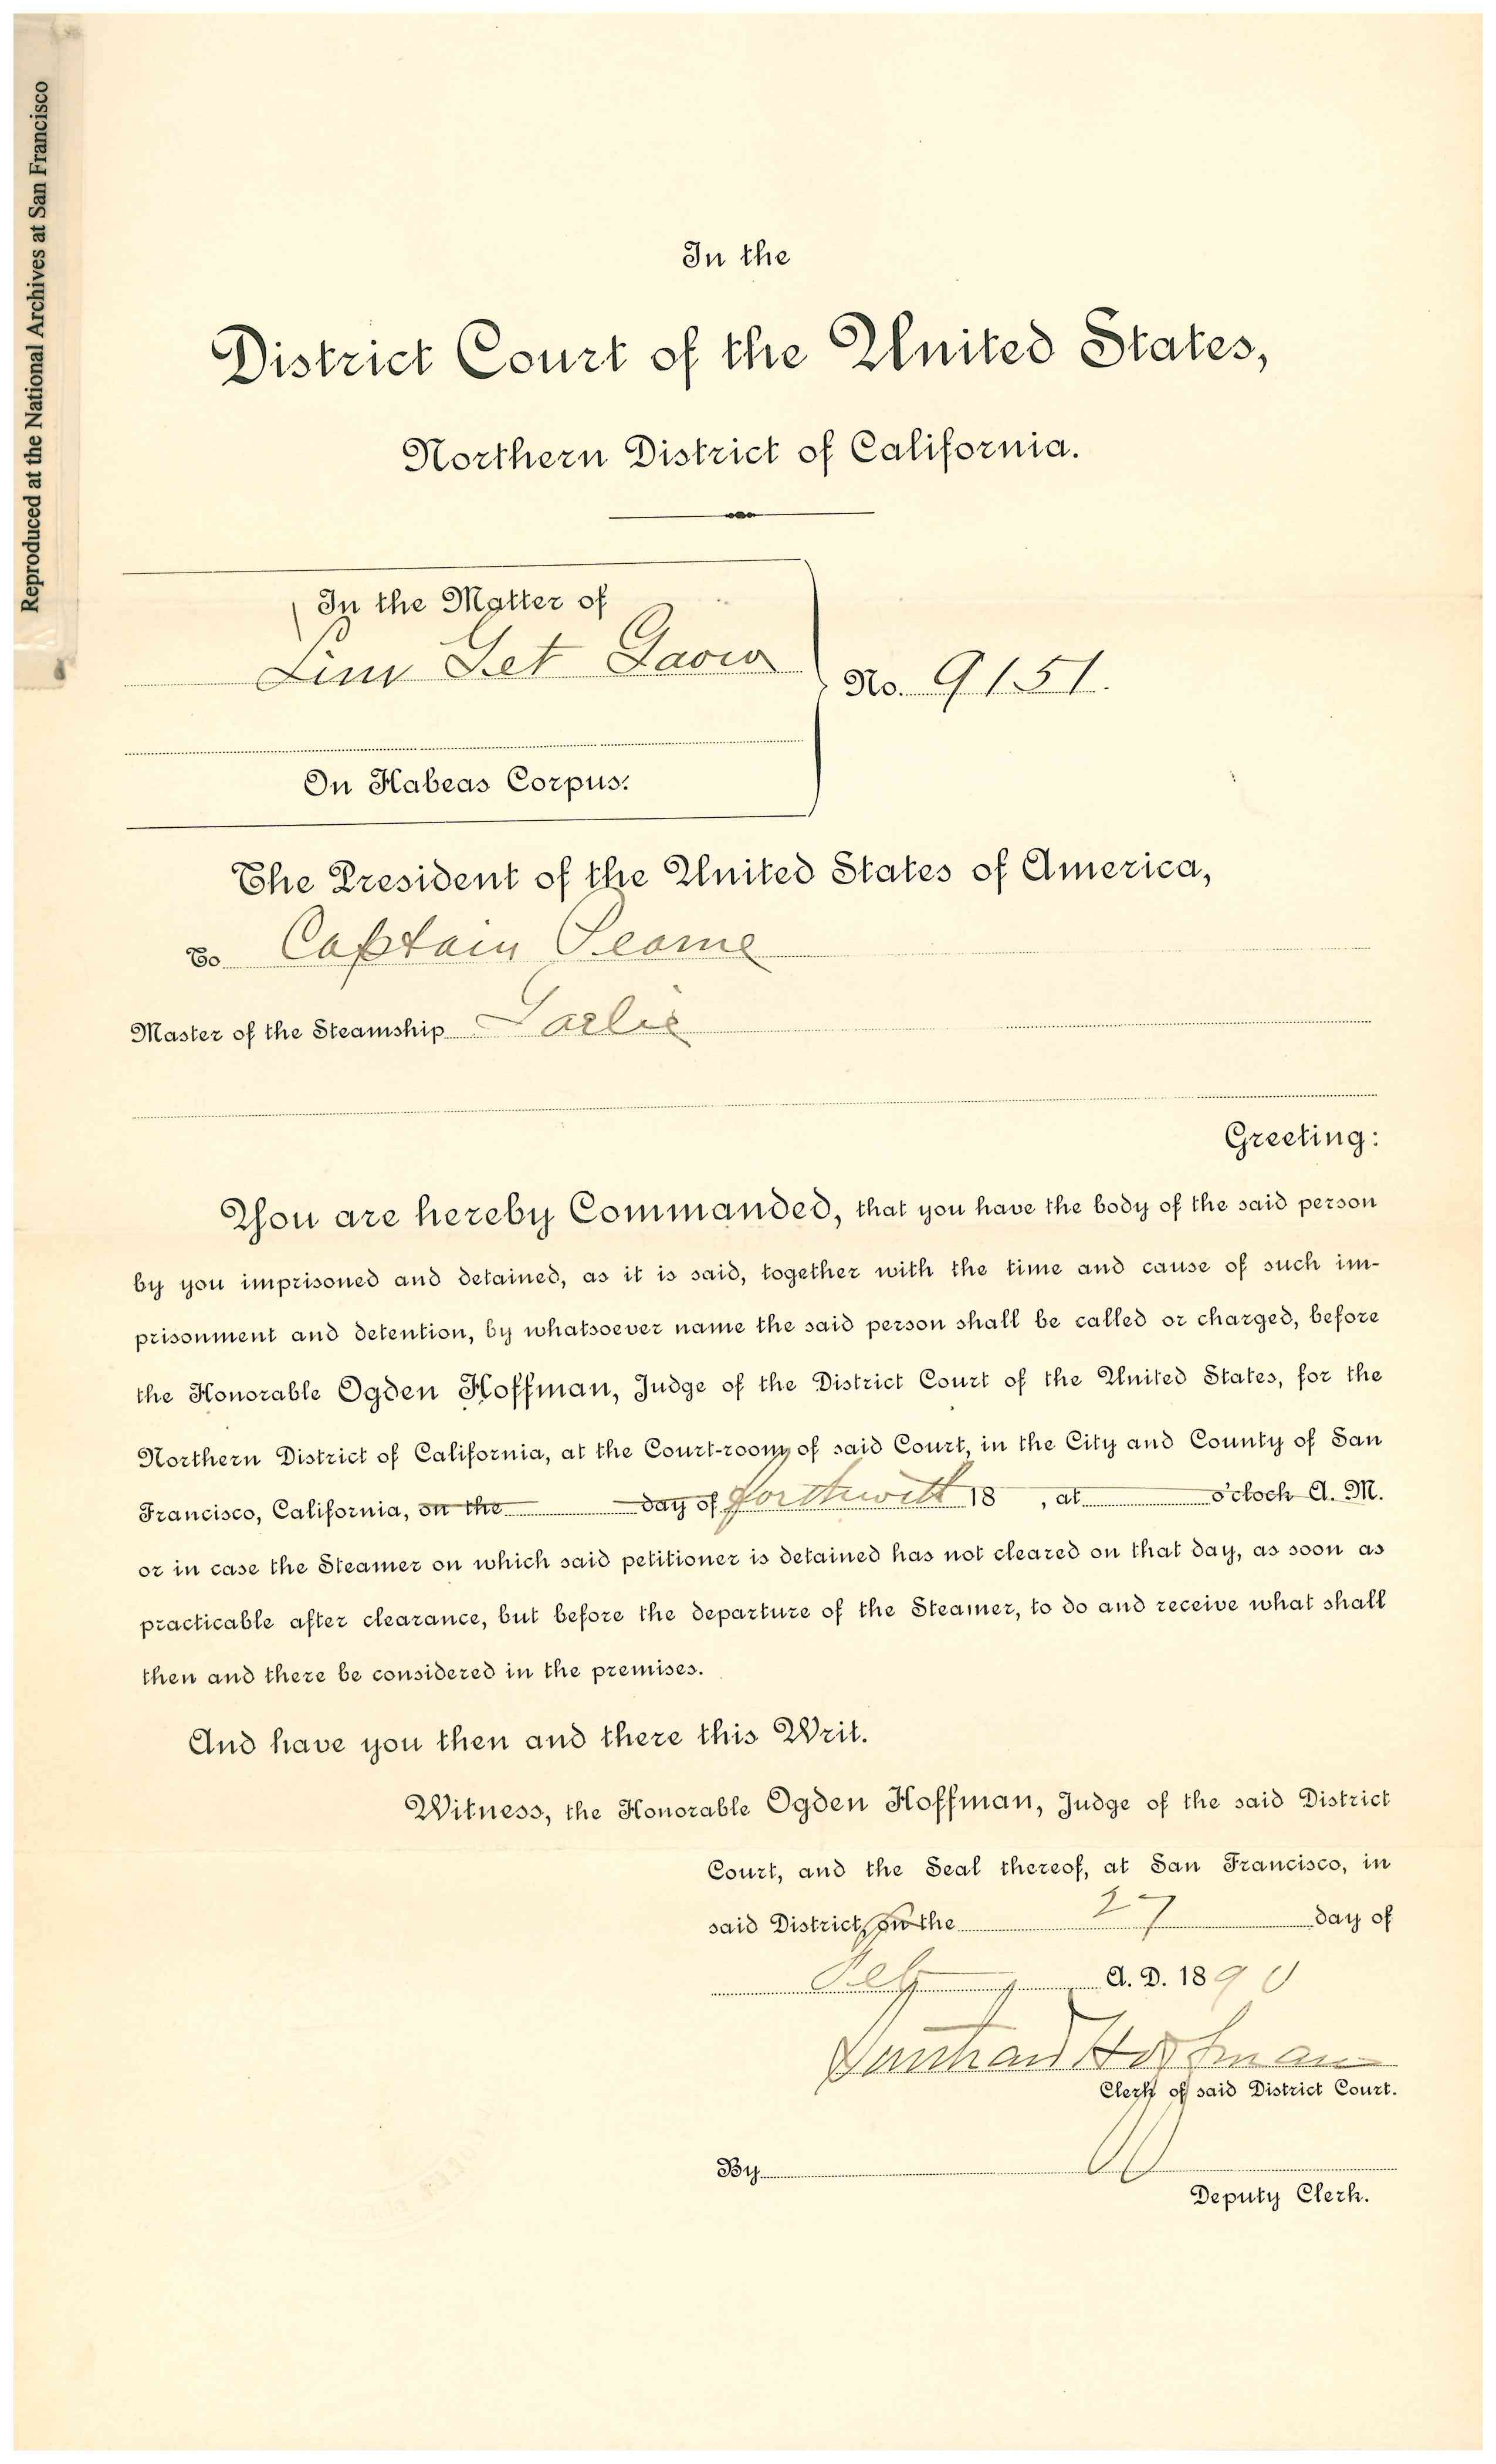 Reproduced at the National Archives at San Francisco
In the
District Court of the United States,
Northern District of California.
In the Matter of
No. 9151.
On Habeas Corpus.
The President of the United States of America,
To Captain
Master of the Steamship
Greeting:
You are hereby Commanded, that you have the body of the said person
by you imprisoned and detained, as it is said, together with the time and cause of such im-
prisonment and detention, by whatsoever name the said person shall be called or charged, before
the Honorable Ogden Hoffman, Judge of the District Court of the United States, for the
Northern District of California, at the Court-room of said Court, in the City and County of San
Francisco, California, on the day of forthwith 18 , at o'clock A. M.
or in case the Steamer on which said petitioner is detained has not cleared on that day, as soon as
practicable after clearance, but before the departure of the Steamer, to do and receive what shall
then and there be considered in the premises.
And have you then and there this Writ.
Witness, the Honorable Ogden Hoffman, Judge of the said District
Court, and the Seal thereof, at San Francisco, in
said District, on the 27 day of
A. D. 1890
Hoffman
Clerk of said District Court.
By
Deputy Clerk.